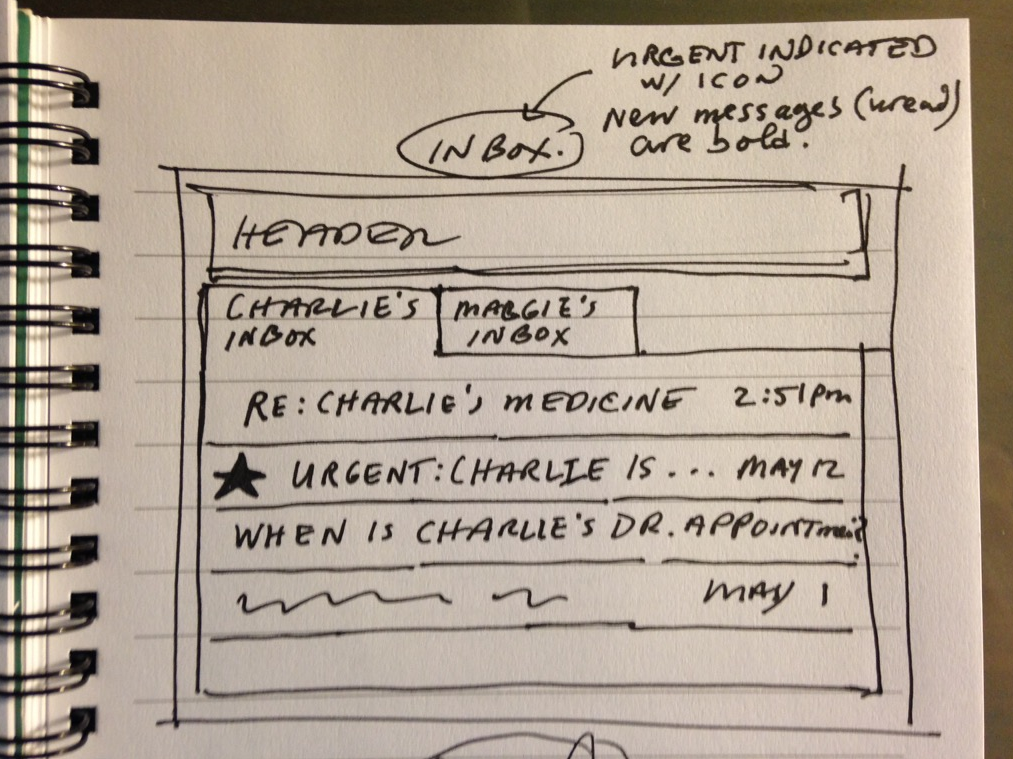 URGENT INDICATED
W/ ICON
New messages (uread)
are bold.
INBOX.
HEADER
CHARLIE'S
INBOX
MAGGIE'S
INBOX
RE: CHARLIE'S MEDICINE 2:51pm
★ URGENT: CHARLIE IS... MAY 12
WHEN IS CHARLIE'S DR. APPOINTment?
MAY 1